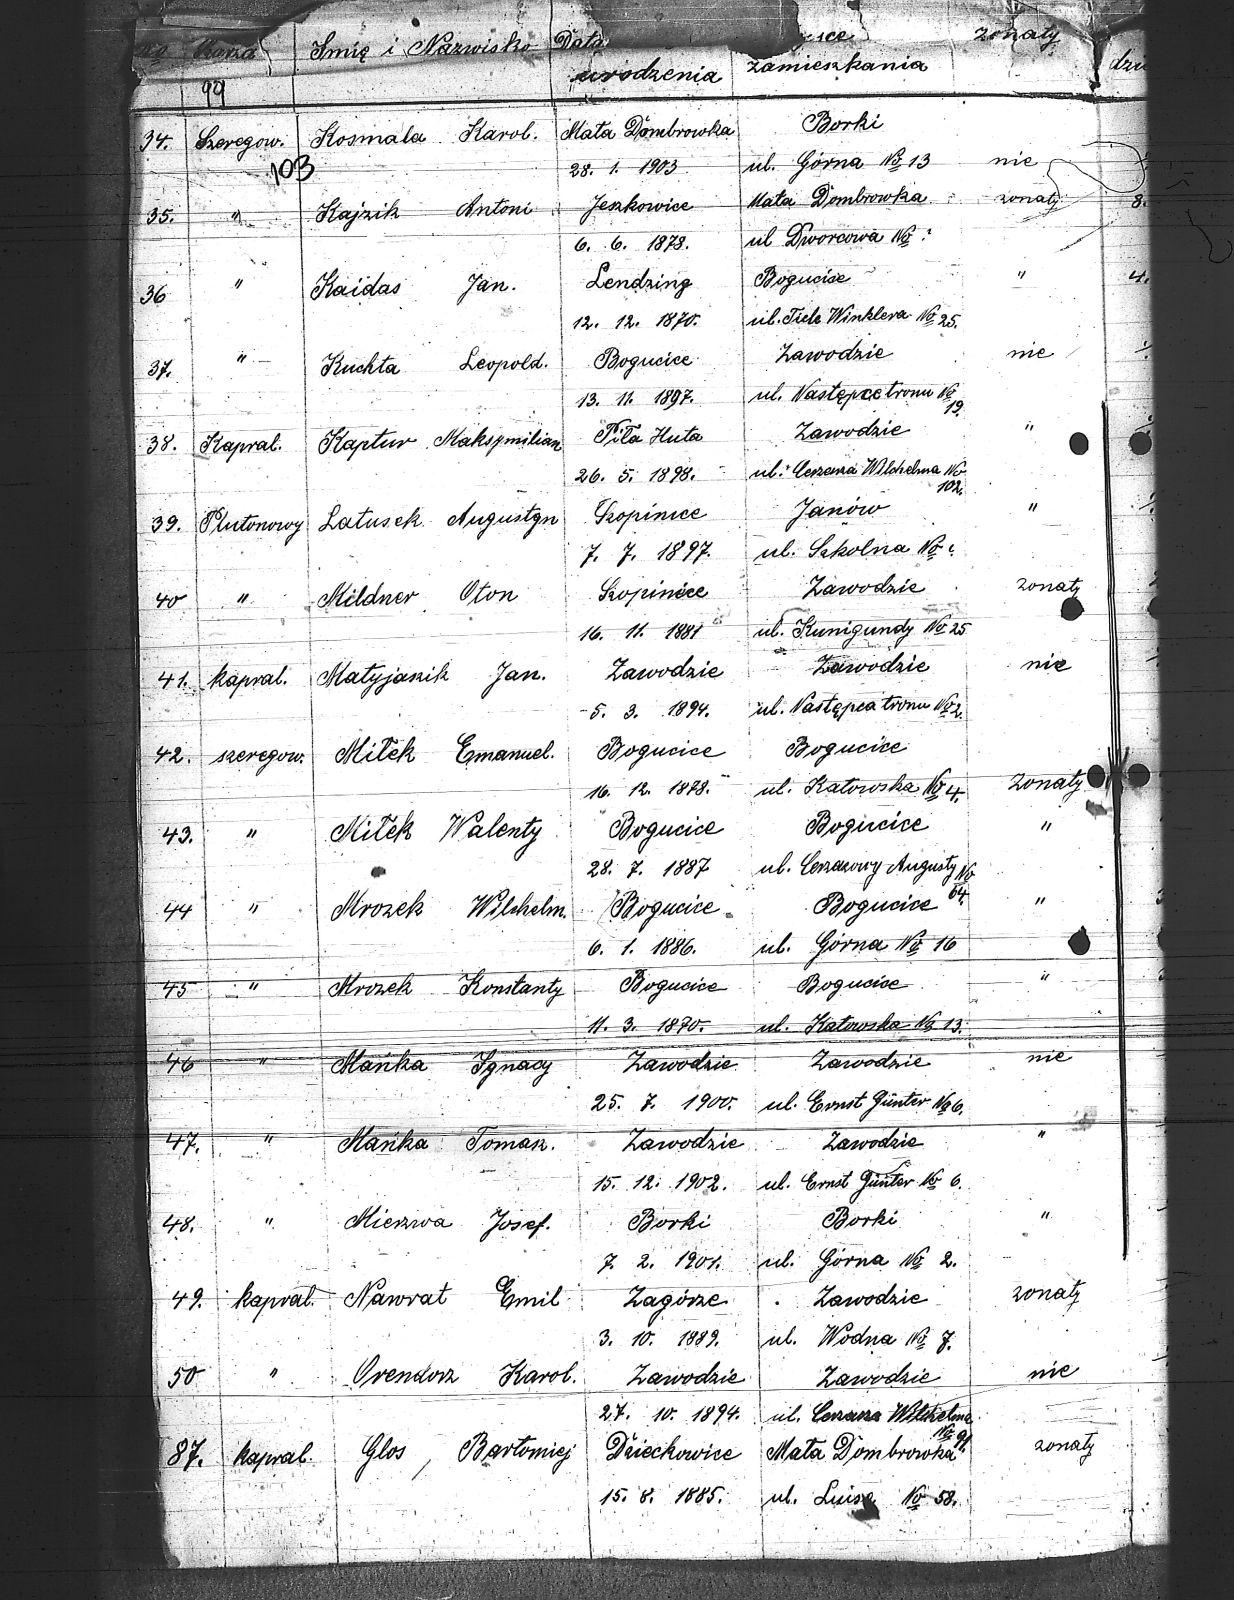 No Szarża Imię i Nazwisko Data żonaty
urodzenia zamieszkania
99
34. Szeregow. Kosmala Karol. Mała Dombrowka Borki
103 28. 1. 1903 ul. Górna No 13 nie
35. " Kajzik Antoni Jeszkowice Mała Dombrowka żonaty 8.
6. 6. 1878. ul Dworcowa No ?
36 " Kaidas Jan. Lendzing Bogucice " 4.
12. 12. 1870. ul. Tiele Winklera No 25.
37. " Kuchta Leopold. Bogucice Zawodzie nie
13. 11. 1897. ul. Następce tronu No 19.
38. Kapral. Kaptur Maksymilian Piła Huta Zawodzie "
26. 5. 1898. ul. Cesarza Wilchelma No 102.
39. Plutonowy Latusek Augustyn Szopinice Janów "
7. 7. 1897. ul. Szkolna No ?
40 " Mildner Oton Szopinice Zawodzie żonaty
16. 11. 1881 ul. Kunigundy No 25
41. kapral. Matyjaszik Jan. Zawodzie Zawodzie nie
5. 3. 1894. ul. Następca tronu No 2.
42. szeregow. Miłek Emanuel. Bogucice Bogucice
16. 12. 1878. ul. Katowska No 4. żonaty
43. " Miłek Walenty Bogucice Bogucice "
28. 7. 1887 ul. Cesarzowy Augusty No 64.
44 " Mrozek Wilchelm. Bogucice Bogucice "
6. 1. 1886. ul. Górna No 16
45 " Mrozek Konstanty Bogucice Bogucice "
11. 3. 1870. ul. Katowska No 13.
46 " Mańka Ignacy Zawodzie Zawodzie nie
25. 7. 1900. ul. Ernst Günter No 6.
47. " Mańka Tomasz. Zawodzie Zawodzie "
15. 12. 1902. ul. Ernst Günter No 6.
48. " Mierzwa Josef. Borki Borki "
7. 2. 1901. ul. Górna No 2.
49. kapral. Nawrat Emil Zagórze Zawodzie żonaty
3. 10. 1889. ul. Wodna No 7.
50 " Orendorz Karol. Zawodzie Zawodzie nie
27. 10. 1894. ul. Cesarza Wilchelma No 91.
87. kapral. Glos, Bartomiej Dzieckowice Mała Dombrowka żonaty
15. 8. 1885. ul. Luisa No 58.